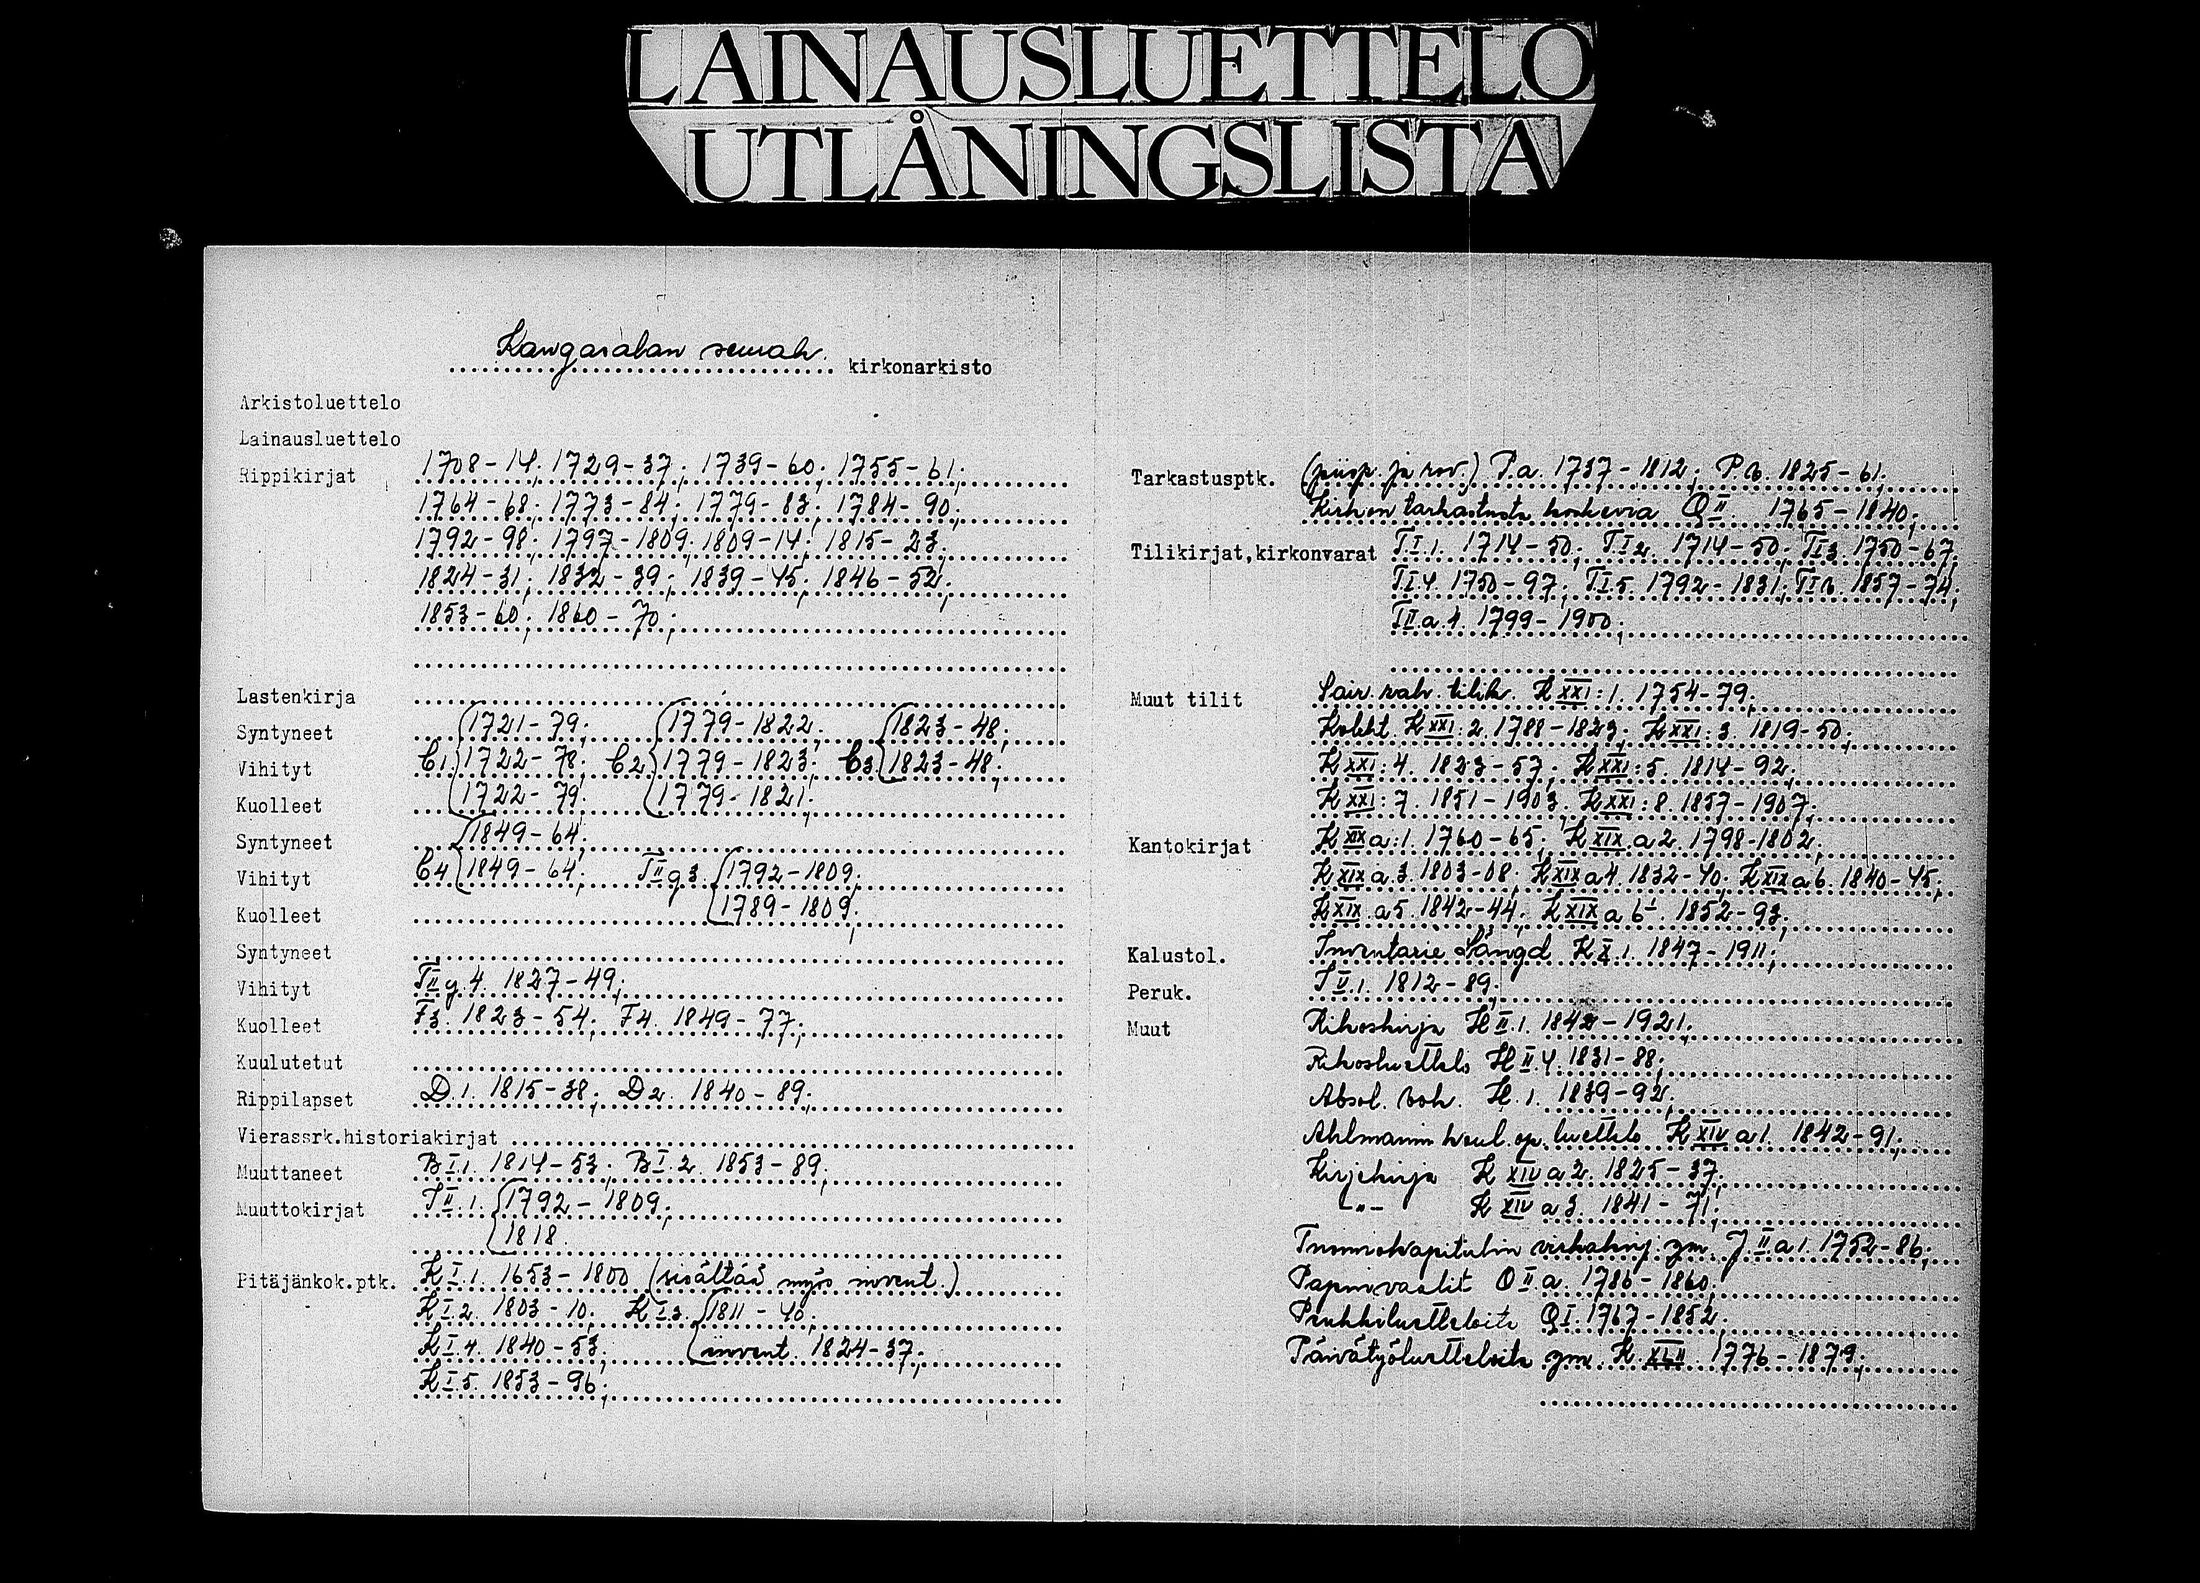 LAINAUSLUETTELO
UTLÅNINGSLISTA
Kangasalan seurak. kirkonarkisto
Arkistoluettelo
Lainausluettelo
Rippikirjat 1708-14; 1729-37; 1739-60; 1755-61;
1764-68; 1773-84; 1779-83; 1784-90;
1792-98; 1797-1809; 1809-14; 1815-23;
1824-31; 1832-39; 1839-45; 1846-52;
1853-60; 1860-70;
Lastenkirja
Syntyneet 1721-79; 1779-1822; 1823-48;
Vihityt C1. 1722-78; C2. 1779-1823; C3 1823-48;
Kuolleet 1722-79; 1779-1821;
Syntyneet 1849-64;
Vihityt C4 1849-64; TII g3. 1792-1809;
Kuolleet 1789-1809;
Syntyneet
Vihityt TII g.4. 1827-49;
Kuolleet F3. 1823-54; F4. 1849-77;
Kuulutetut
Rippilapset D.1. 1815-38; D2. 1840-89;
Vierassrk.historiakirjat
Muuttaneet B I.1. 1814-53; B I.2. 1853-89;
Muuttokirjat J II.1. 1792-1809;
1818.
Pitäjänkok.ptk. K I.1. 1653-1800 (sisältää myös invent.)
K I.2. 1803-10; K I.3. 1811-40;
K I.4. 1840-53; invent. 1824-37;
K I.5. 1853-96;
Tarkastusptk. (piisp. ja rov.) P.a. 1737-1812; P.b. 1825-61;
Kirkon tarkastusta koskevia Q II 1765-1840;
Tilikirjat,kirkonvarat T I.1. 1714-50; T I 2. 1714-50; T I 3. 1750-67;
T I.4. 1750-97; T I.5. 1792-1831; T I 6. 1857-74;
T II.a.1. 1799-1900;
Muut tilit Sair. rah. tilik. K XXI:1. 1754-79;
Kolekt. K XXI:2. 1788-1823; K XXI:3. 1819-50;
K XXI:4. 1823-57; K XXI:5. 1814-92;
K XXI:7. 1851-1903; K XXI:8. 1857-1907;
Kantokirjat K XIX a:1. 1760-65; K XIX.a2. 1798-1802;
K XIX a.3. 1803-08; K XIX a4. 1832-40; K XIX a6. 1840-45;
K XIX.a5. 1842-44; K XIX a 6¹. 1852-93;
Kalustol. Inventarie Längd K X.1. 1847-1911;
Peruk. J V.1. 1812-89;
Muut Rikoskirja H II.1. 1842-1921;
Rikosluettelo H II.4. 1831-88;
Absol. bok. H.1. 1839-92;
Ahlmannin koul.op. luettelo K XIV a1. 1842-91;
Kirjekirja K XIV a2. 1825-37;
-"- K XIV a 3. 1841-71;
Tuomiokapitulin virkakirj. ym. J.II a1. 1752-86;
Papinvaalit O II a. 1786-1860;
Penkkiluetteloita Q I. 1767-1852;
Päivätyöluetteloita ym. K 1776-1879;